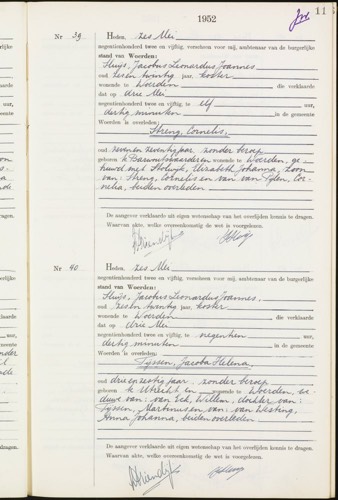 1952
11
Nr 39. Heden, zes Mei
negentienhonderd twee en vijftig, verscheen voor mij, ambtenaar van de burgerlijke
stand van Woerden:
Jacobus Leonardus Joannes,
oud zeven twintig jaar, koster
wonende te Woerden, die verklaarde
dat op drie Mei
negentienhonderd twee en vijftig, te elf uur,
dertig minuten in de gemeente
Woerden is overleden:
Streng, Cornelis,
oud zeven en zeventig jaar, zonder beroep
geboren te Barwoutswaarder en wonende te Woerden, ge-
huwd met Elizabeth Johanna, zoon
van: Streng, Cornelis en van van Cor-
nelia, beiden overleden
De aangever verklaarde uit eigen wetenschap van het overlijden kennis te dragen.
Waarvan akte, welke overeenkomstig de wet is voorgelezen.
Nr 40 Heden, zes Mei
negentienhonderd twee en vijftig, verscheen voor mij, ambtenaar van de burgerlijke
stand van Woerden:
Jacobus Leonardus Joannes,
oud zeven twintig jaar, koster
wonende te Woerden, die verklaarde
dat op drie Mei
negentienhonderd twee en vijftig, te negentien uur,
dertig minuten in de gemeente
Woerden is overleden:
Tyssen, Jacoba Helena,
oud drie en zestig jaar, zonder beroep
geboren te Utrecht en wonende te Woerden, we-
duwe van: van Eck, Willem, dochter van:
Tyssen, Martinus en van: van
Anna Johanna, beiden overleden
De aangever verklaarde uit eigen wetenschap van het overlijden kennis te dragen.
Waarvan akte, welke overeenkomstig de wet is voorgelezen.